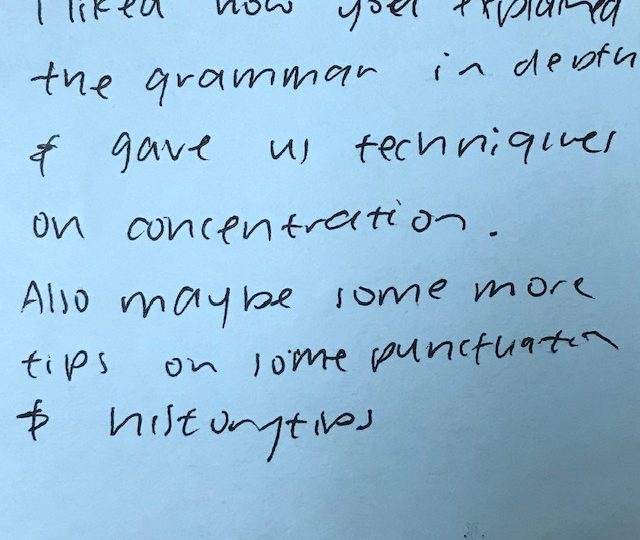 I liked how you explained
the grammar in depth
& gave us techniques
on concentration.
Also maybe some more
tips on some punctuation
& history tips